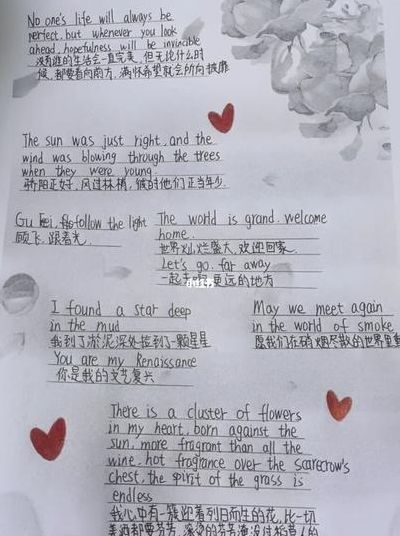 No one's life will always be
perfect. but whenever you look
ahead, hopefulness will be invincible
没有谁的生活会一直完美，但无论什么时
候，都要看向前方，满怀希望就会所向披靡
The sun was just right, and the
wind was blowing through the trees
when they were young.
骄阳正好，风过林梢，彼时他们正当年少.
Gu Fei, follow the light
顾飞，跟着光.
The world is grand. welcome
home.
世界灿烂盛大，欢迎回家.
Let's go. far away
一起去更远的地方
小红书
I found a star deep
in the mud
我到了淤泥深处挖到了一颗星星
You are my Renaissance
你是我的文艺复兴
May we meet again
in the world of smoke
愿我们在硝烟尽散的世界里重
There is a cluster of flowers
in my heart, born against the
sun, more fragrant than all the
wine, hot fragrance over the scarecrow's
chest, the spirit of the grass is
endless
我心中有一簇迎着烈日而生的花，比一切
美酒都要芬芳，滚烫的芬芳淹没过稻草人的